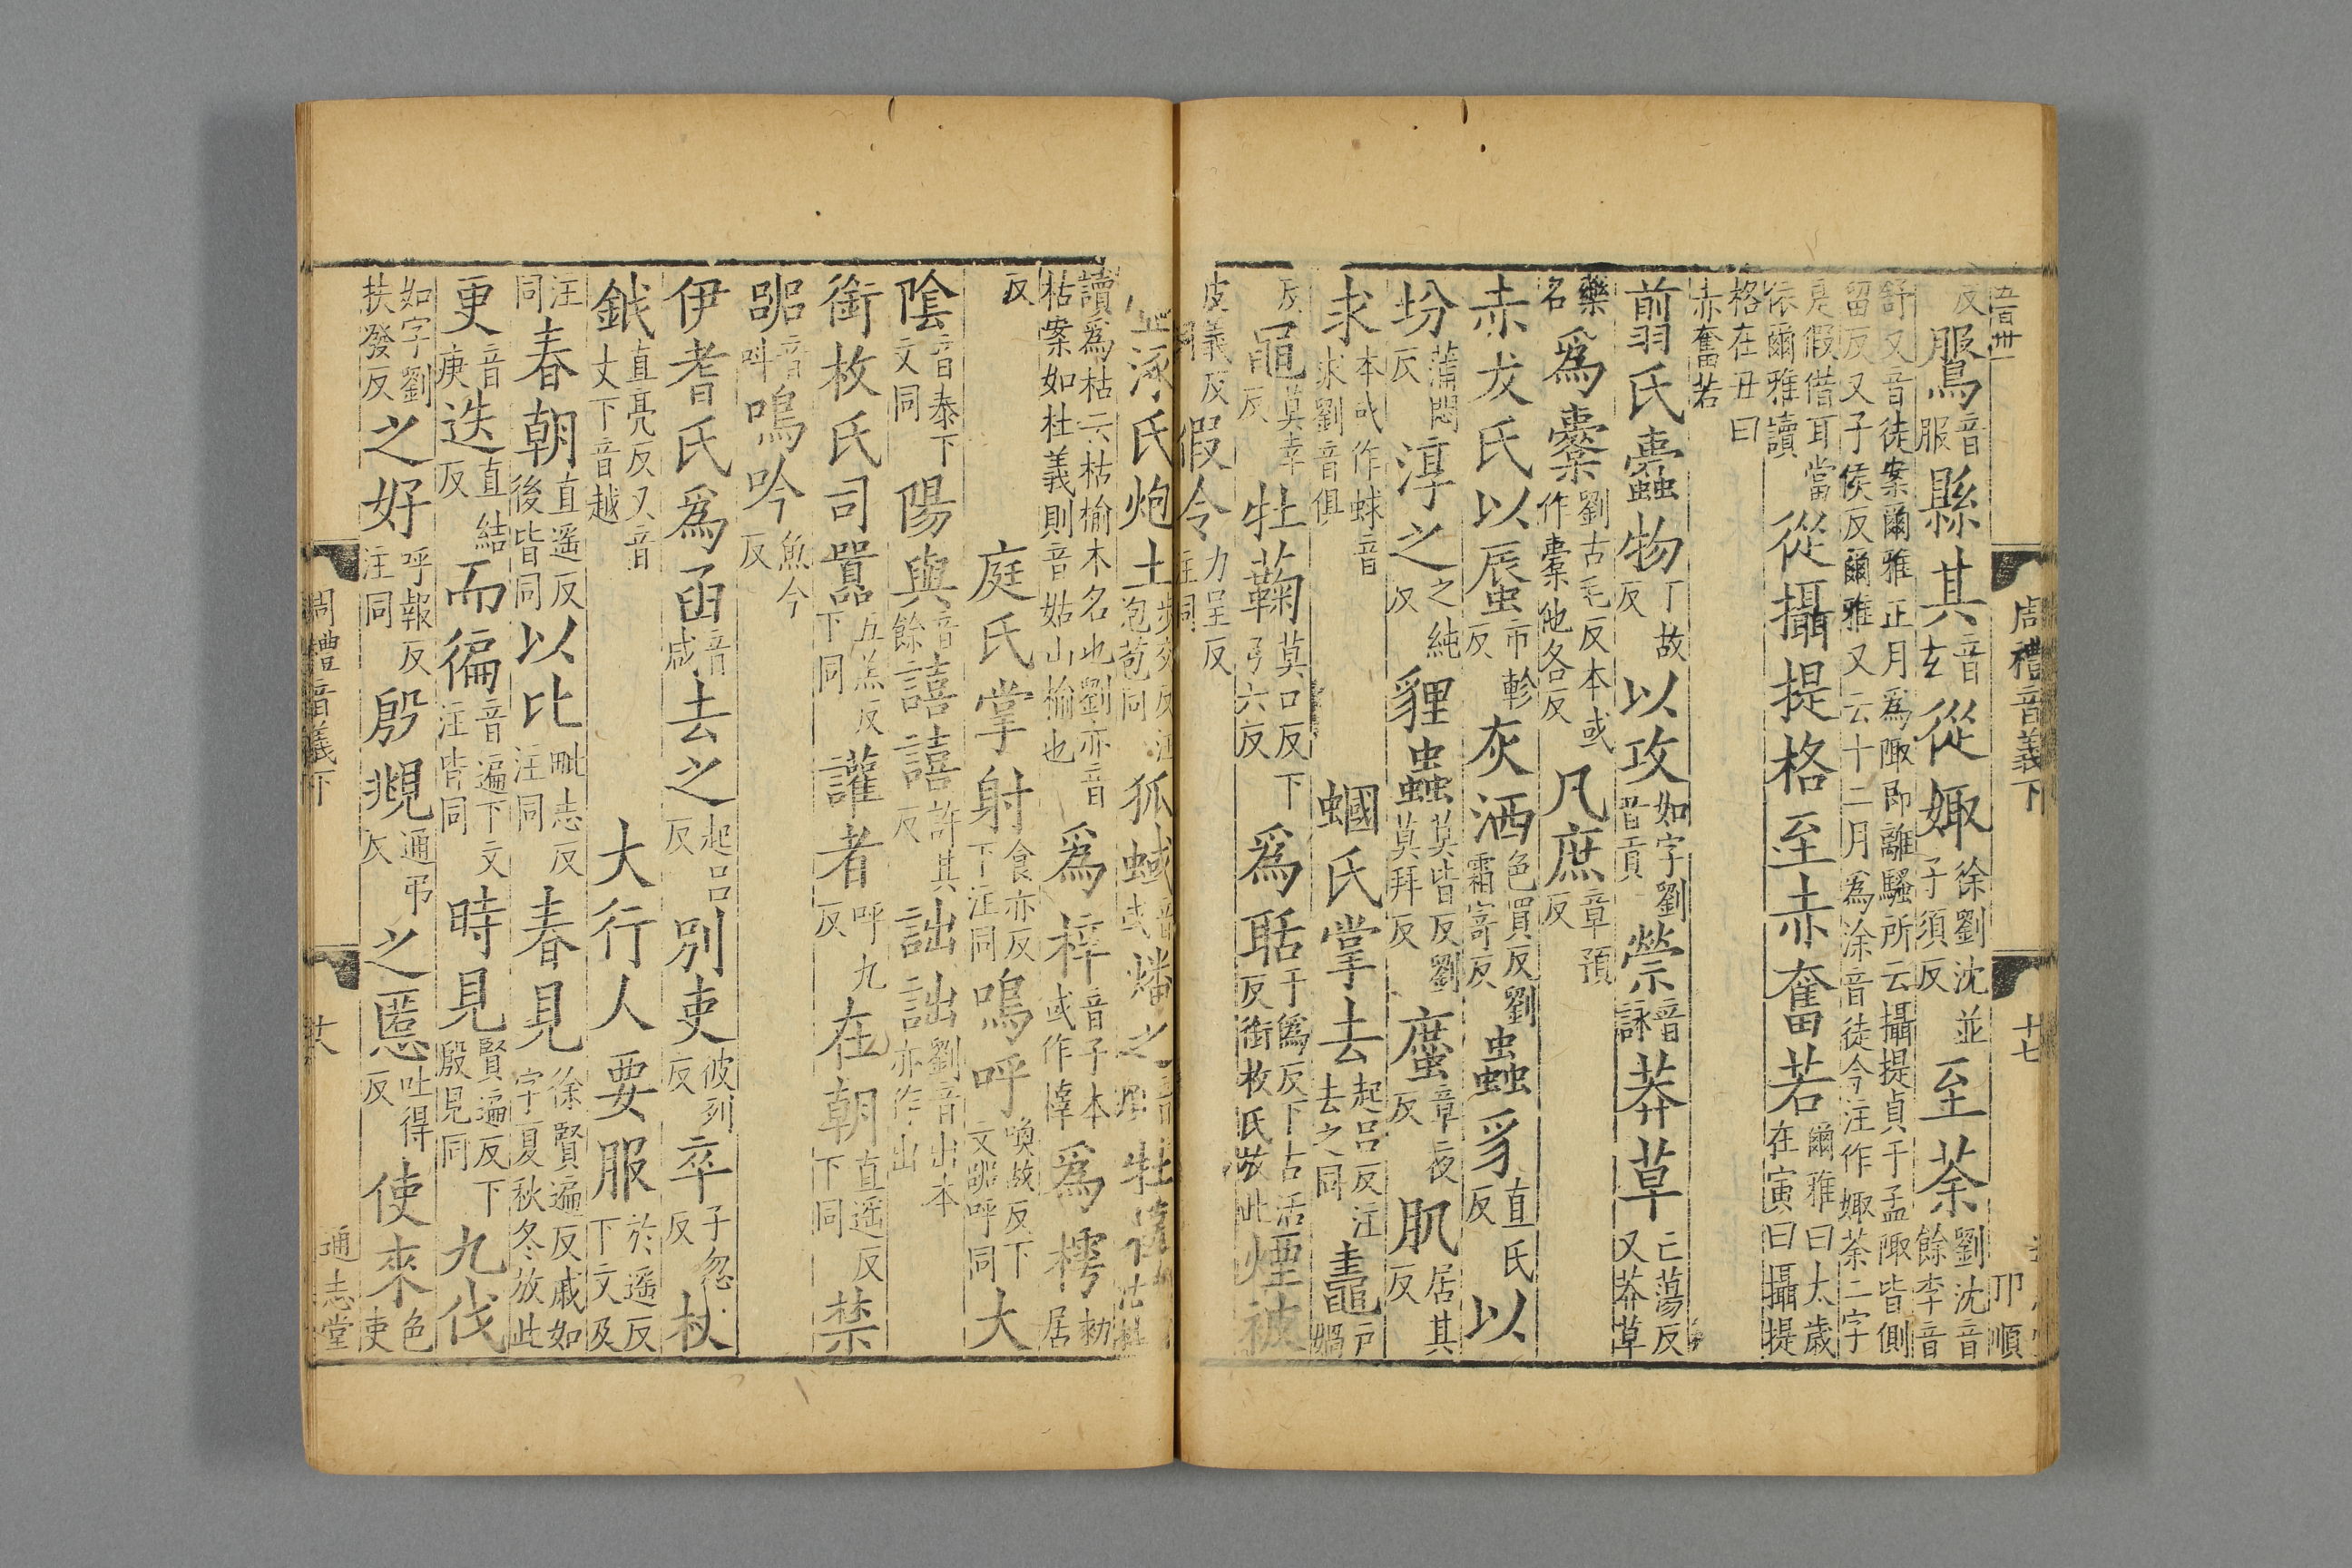 五百卅一 周禮音義下 十七 卯順
反鵩音服縣其音玄從娵徐劉沈並子須反至荼劉沈音餘李音
舒又音徒案爾雅正月為陬即離騷所云攝提貞于孟陬皆側
留反又子侯反爾雅又云十二月為涂音徒今注作娵荼二字
是假借耳當
依爾雅讀從攝提格至赤奮若爾雅曰太歲在寅曰攝提
格在丑曰
赤奮若
翦氏蠹物丁故反以攻如字劉音貢禜音詠莽草亡蕩反又莽草
藥名為櫜劉古毛反本或作橐他各反凡庶章預反
赤犮氏以蜃市軫反灰洒色買反劉霜寄反蟲豸直氏反以
坋蒲悶反淳之之純反貍蟲莫皆反劉莫拜反䗪章夜反肌居其反
求本或作蛷音求劉音俱蟈氏掌去起呂反注去之同鼃戶媧
反黽莫幸反牡蘜莫口反下弓六反為聒于偽反下古活反銜枚氏放此煙被
皮義反假令力呈反注同
壺涿氏炮土步交反注泡苞同狐蜮音或蟠之音牡
讀為枯云枯榆木名也劉亦音
枯案如杜義則音姑山榆也為梓音子本或作䔂為樗勑居
反庭氏掌射食亦反下注同鳴呼喚故反下文嘂呼同大
陰音泰下文同陽與音餘譆譆許其反詘詘劉音出本亦作出
銜枚氏司嚚五羔反下同讙者呼九反在朝直遥反下同禁
嘂音叫嗚吟魚今反
伊耆氏為函音咸去之起呂反別吏彼列反卒子忽反杖
鉞直亮反又音丈下音越大行人要服於遥反下文及
注同春朝直遥反後皆同以比毗志反注同春見徐賢遍反戚如字夏秋冬放此
更音庚迭直結反而徧音遍下文注皆同時見賢遍反下殷見同九伐
如字劉扶發反之好呼報反注同殷覜通弔反之慝吐得反使來色吏
周禮音義下 十八 通志堂